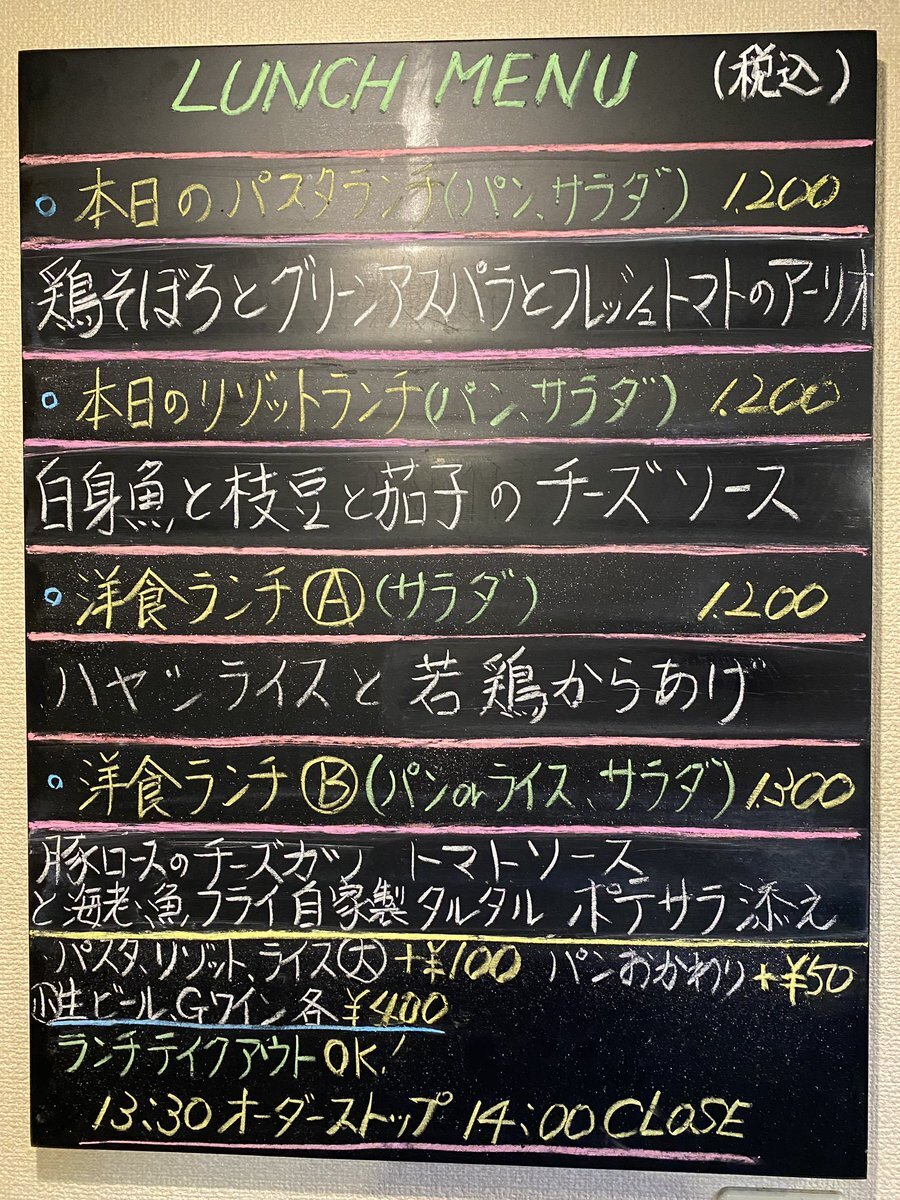 LUNCH MENU (税込)
本日のパスタランチ(パン、サラダ) 1.200
鶏そぼろとグリーンアスパラとフレッシュトマトのアーリオ
本日のリゾットランチ(パン、サラダ) 1.200
白身魚と枝豆と茄子のチーズソース
洋食ランチⒶ(サラダ) 1.200
ハヤシライスと若鶏からあげ
洋食ランチⒷ(パンorライス、サラダ) 1.300
豚ロースのチーズカツ トマトソース
と海老、魚フライ自家製タルタル ポテサラ添え
パスタ、リゾット、ライス㊅+¥100 パンおかわり+¥50
小生ビール、Gワイン各¥400
ランチテイクアウトOK!
13:30オーダーストップ 14:00 CLOSE